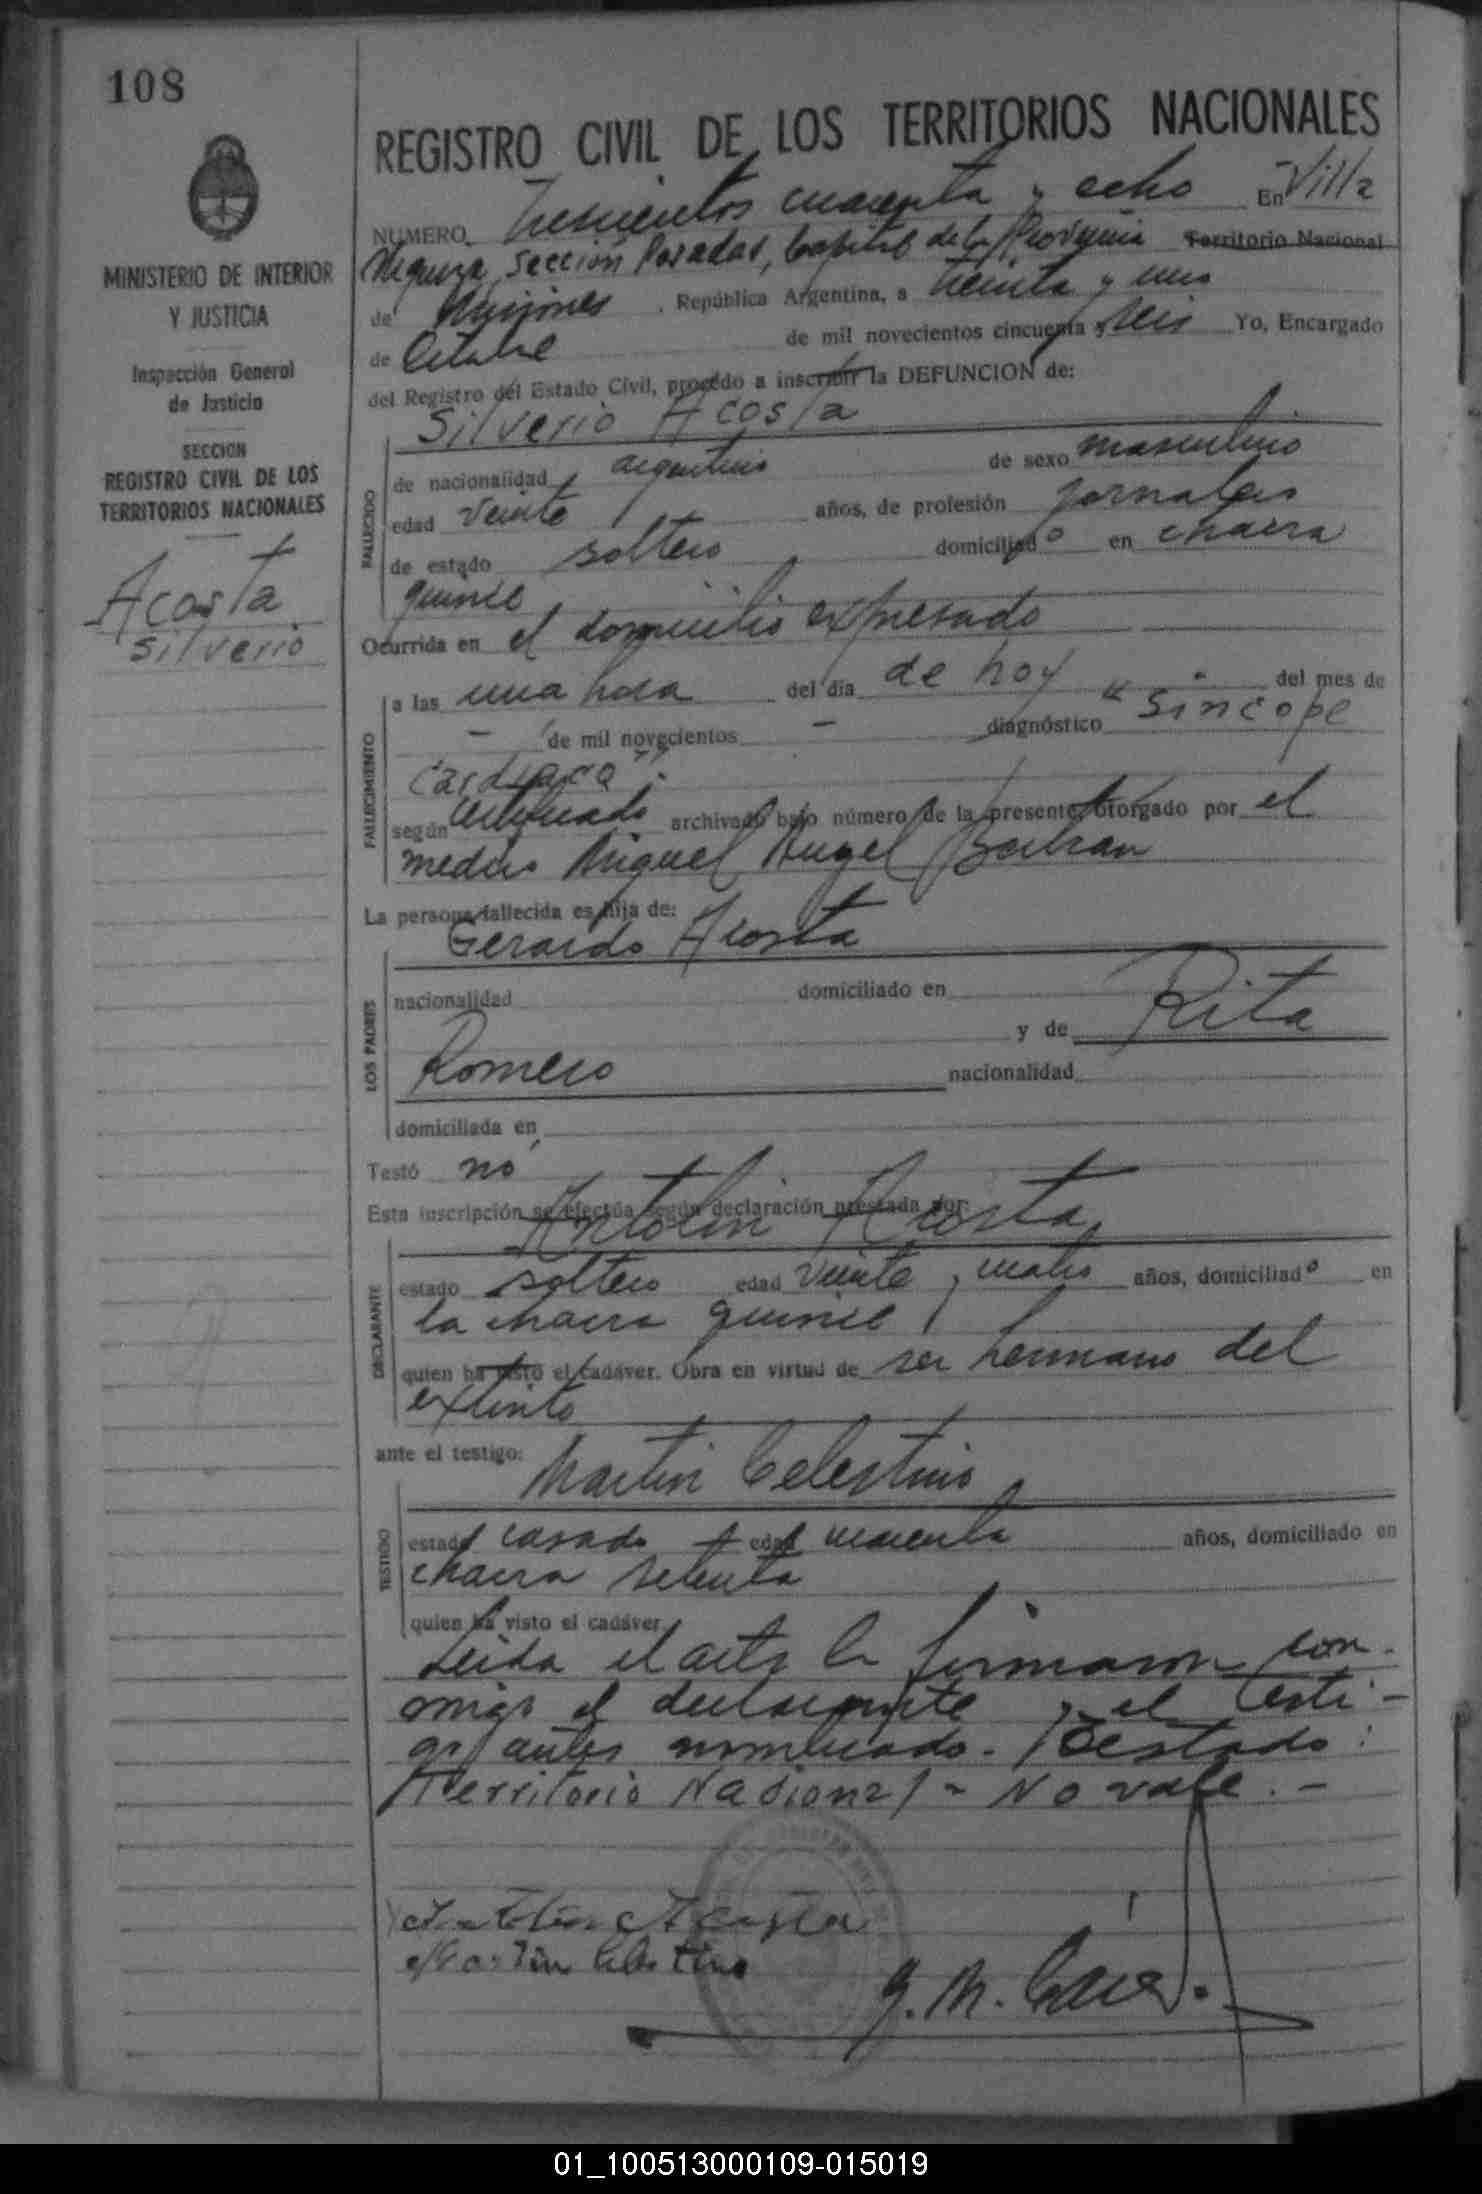 108
REGISTRO CIVIL DE LOS TERRITORIOS NACIONALES
MINISTERIO DE INTERIOR
Y JUSTICIA
Inspección General
de Justicia
SECCION
REGISTRO CIVIL DE LOS
TERRITORIOS NACIONALES
Acosta
Silverio
NUMERO Trescientos cuarenta y ocho En Villa
Sección Posadas, Capital de la Provincia Territorio Nacional
de Misiones, República Argentina, a treinta y uno
de Octubre de mil novecientos cincuenta y seis Yo, Encargado
del Registro del Estado Civil, procedo a inscribir la DEFUNCION de:
Silverio Acosta
FALLECIDO
de nacionalidad argentino de sexo masculino
edad veinte años, de profesión jornalero
de estado soltero domiciliado en chacra
quince
Ocurrida en el domicilio expresado
FALLECIMIENTO
a las una hora del día de hoy del mes de
- de mil novecientos - diagnóstico "Sincope
cardiaco".
según certificado archivado bajo número de la presente, otorgado por el
medico Miguel Angel
La persona fallecida es hija de:
Gerardo Acosta
LOS PADRES
nacionalidad domiciliado en
y de Rita
Romero nacionalidad
domiciliada en
Testó no
Esta inscripción se efectúa según declaración prestada por:
Antolin Acosta,
DECLARANTE
estado soltero edad veinte y cuatro años, domiciliado en
la chacra quince
quien ha visto el cadáver. Obra en virtud de ser hermano del
extinto
ante el testigo:
Martin Celestino
TESTIGO
estado casado edad cuarenta años, domiciliado en
chacra setenta
quien ha visto el cadáver.
Leida el acta la firmaron con-
migo el declarante y el testi-
go antes nombrado. Testado:
Territorio Nacional - No vale. -
Antolin Acosta
Martin Celestino
01_100513000109-015019